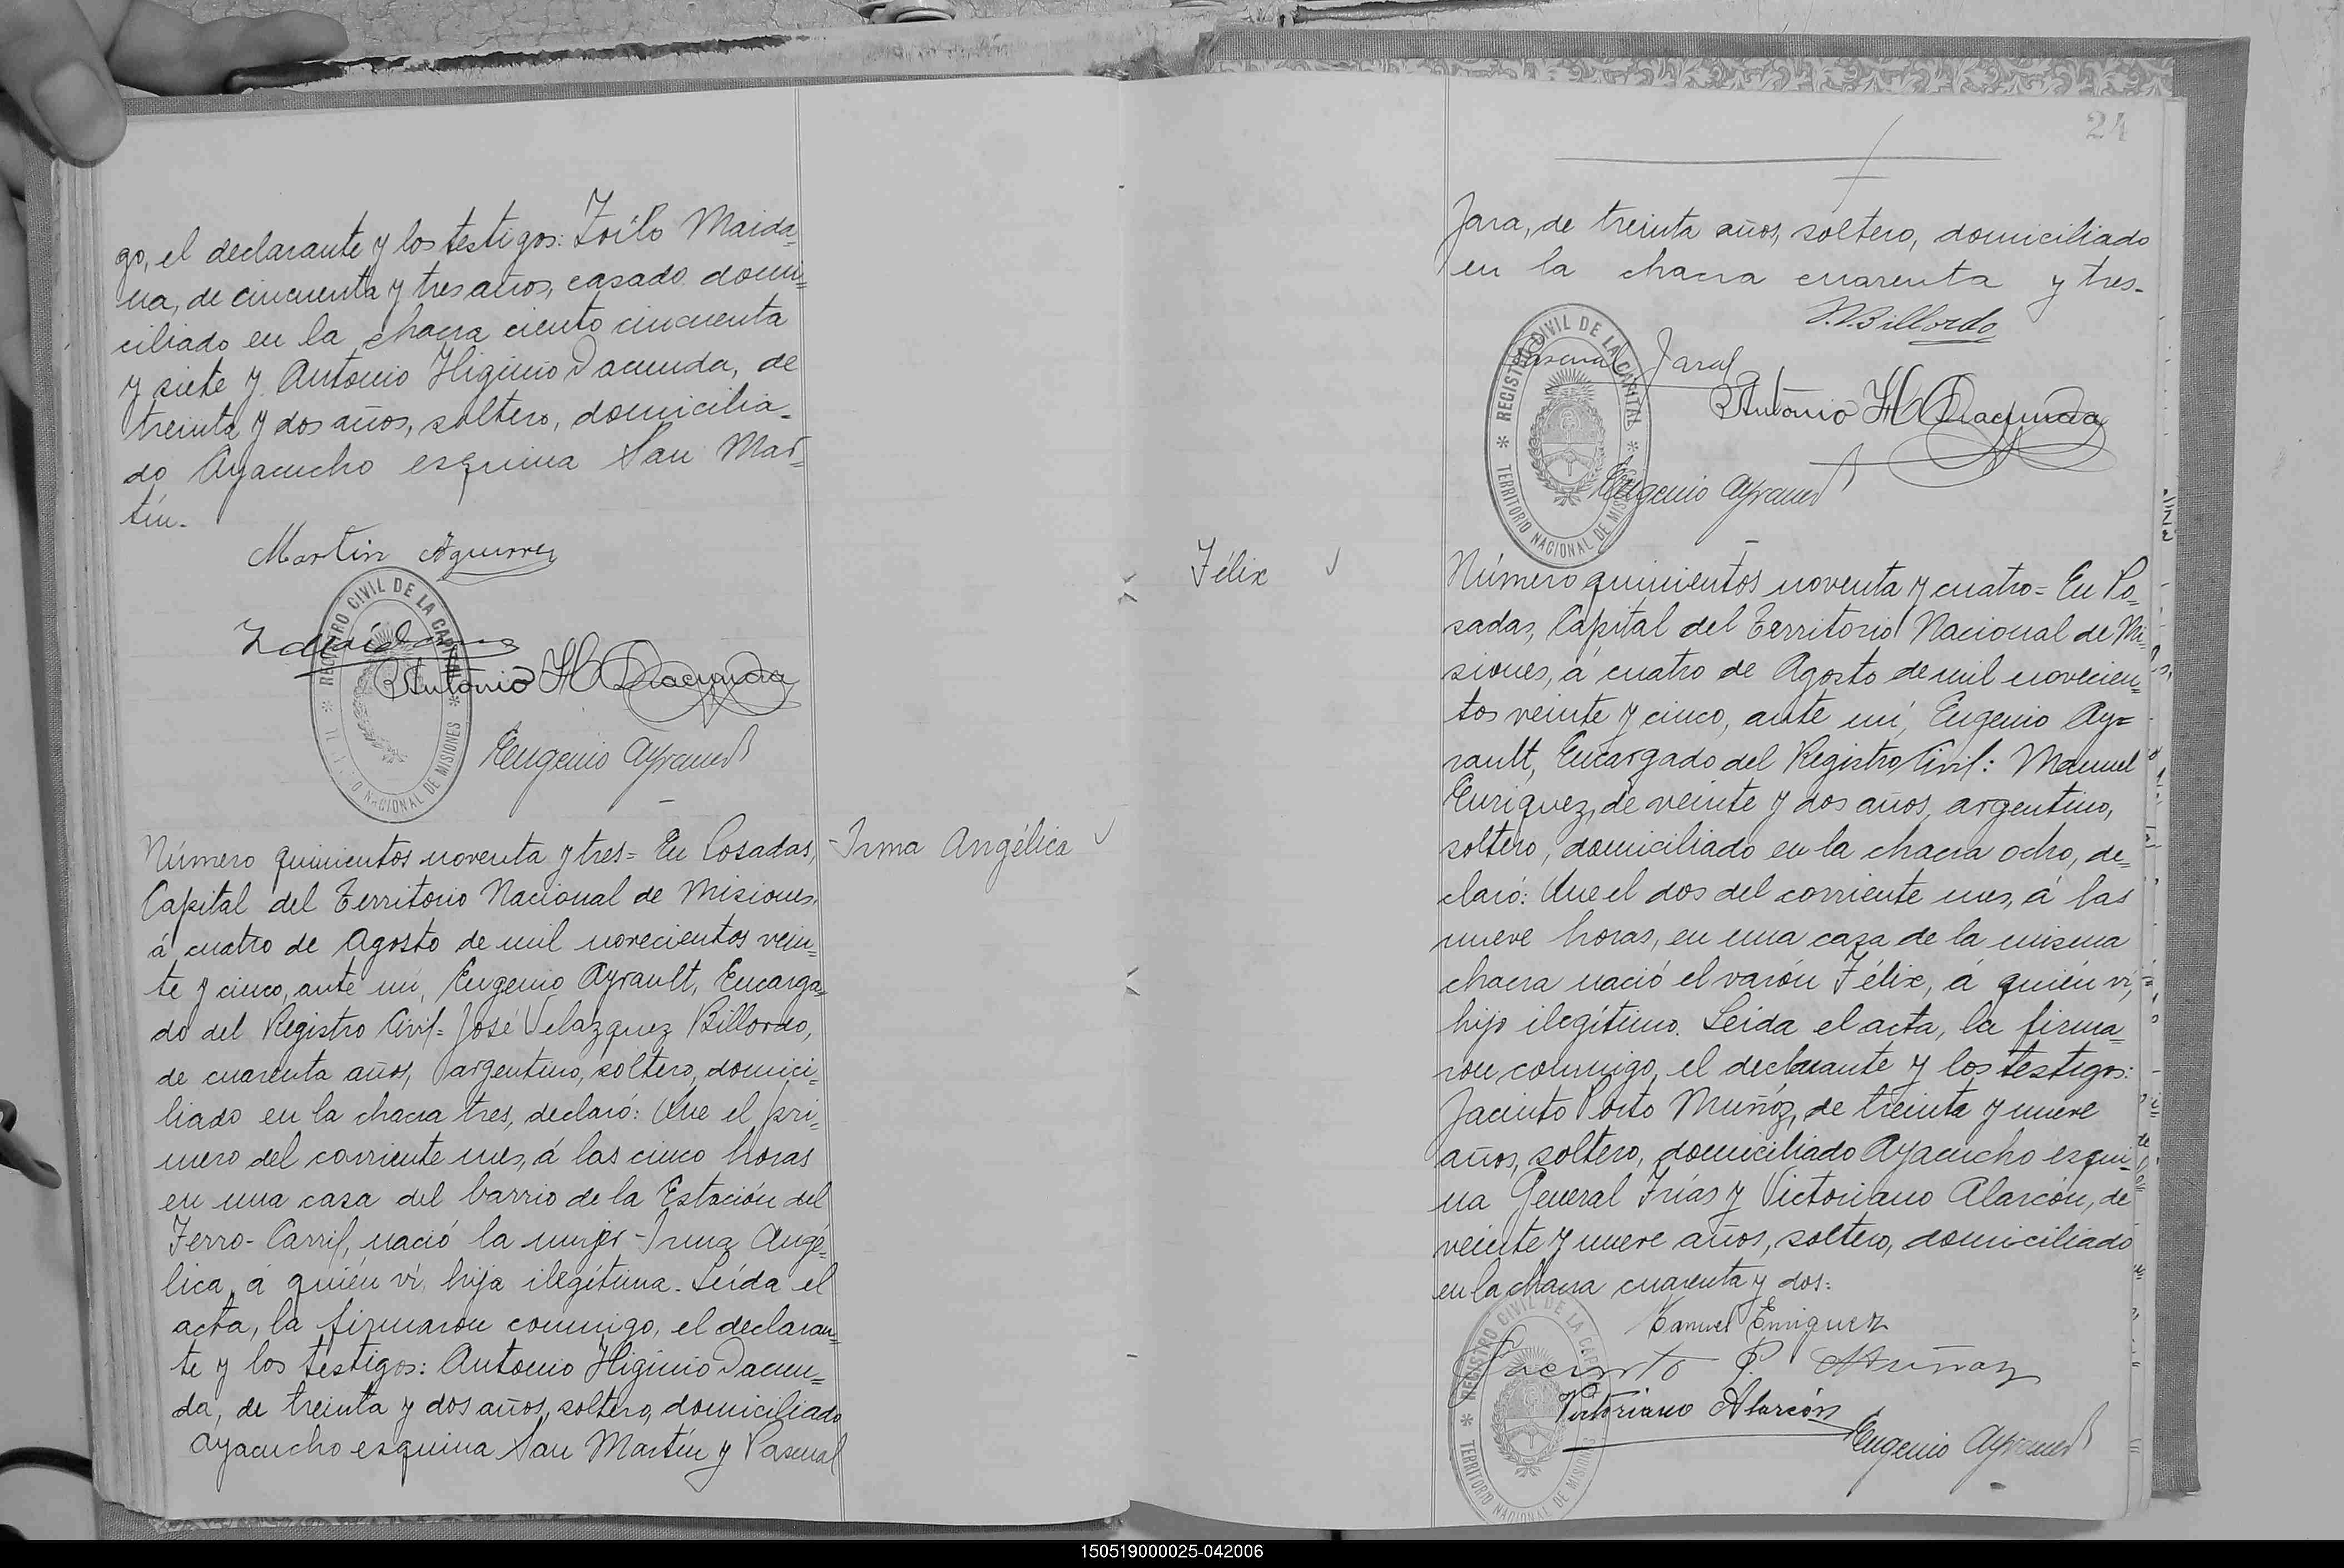 go, el declarante y los testigos: Zoilo Maida=
na, de cincuenta y tres años, casado domi=
ciliado en la chacra ciento cincuenta
y siete y Antonio Higinio Dacunda, de
treinta y dos años, soltero, domicilia-
do Ayacucho esquina San Mar=
tín.
Martin Aguirre
REGISTRO CIVIL DE LA CAPITAL
NACIONAL DE MISIONES
Antonio H Dacunda
Eugenio Ayrault
Número quinientos noventa y tres= En Posadas,
Capital del Territorio Nacional de Misiones,
á cuatro de Agosto de mil novecientos vein=
te y cinco, ante mí, Eugenio Ayrault, Encarga=
do del Registro Civil= José Velazquez Billordo,
de cuarenta años, argentino, soltero, domici=
liado en la chacra tres, declaró: Que el pri=
mero del corriente mes, á las cinco horas
en una casa del barrio de la Estación del
Ferro-Carril, nació la mujer -Irma Angé=
lica, á quién ví, hija ilegítima. Leída el
acta, la firmaron conmigo, el declaran=
te y los testigos: Antonio Higinio Dacun=
da, de treinta y dos años, soltero, domiciliado
Ayacucho esquina San Martín y Pascual
-Irma Angélica
24
Jara, de treinta años, soltero, domiciliado
en la chacra cuarenta y tres-
Billordo
Pascual Jara
REGISTRO CIVIL DE LA CAPITAL
TERRITORIO NACIONAL DE MISIONES
Antonio H Dacunda
Eugenio Ayrault
Félix
Número quinientos noventa y cuatro= En Po=
sadas, Capital del Territorio Nacional de Mi=
siones, á cuatro de Agosto de mil novecien=
tos veinte y cinco, ante mí, Eugenio Ay=
rault, Encargado del Registro Civil: Manuel
Enriquez, de veinte y dos años, argentino,
soltero, domiciliado en la chacra ocho, de=
claró: Que el dos del corriente mes, á las
nueve horas, en una casa de la misma
chacra nació el varón Félix, á quién ví,
hijo ilegítimo. Leída el acta, la firma=
ron conmigo, el declarante y los testigos:
Jacinto Porto Muñóz, de treinta y nueve
años, soltero, domiciliado Ayacucho esqui=
na General Frías y Victoriano Alarcón, de
veinte y nueve años, soltero, domiciliado
en la chacra cuarenta y dos:
Manuel Enriquez
Jacinto P. Muñoz
Victoriano Alarcón
Eugenio Ayrault
REGISTRO CIVIL DE LA CAPITAL
TERRITORIO NACIONAL DE MISIONES
150519000025-042006